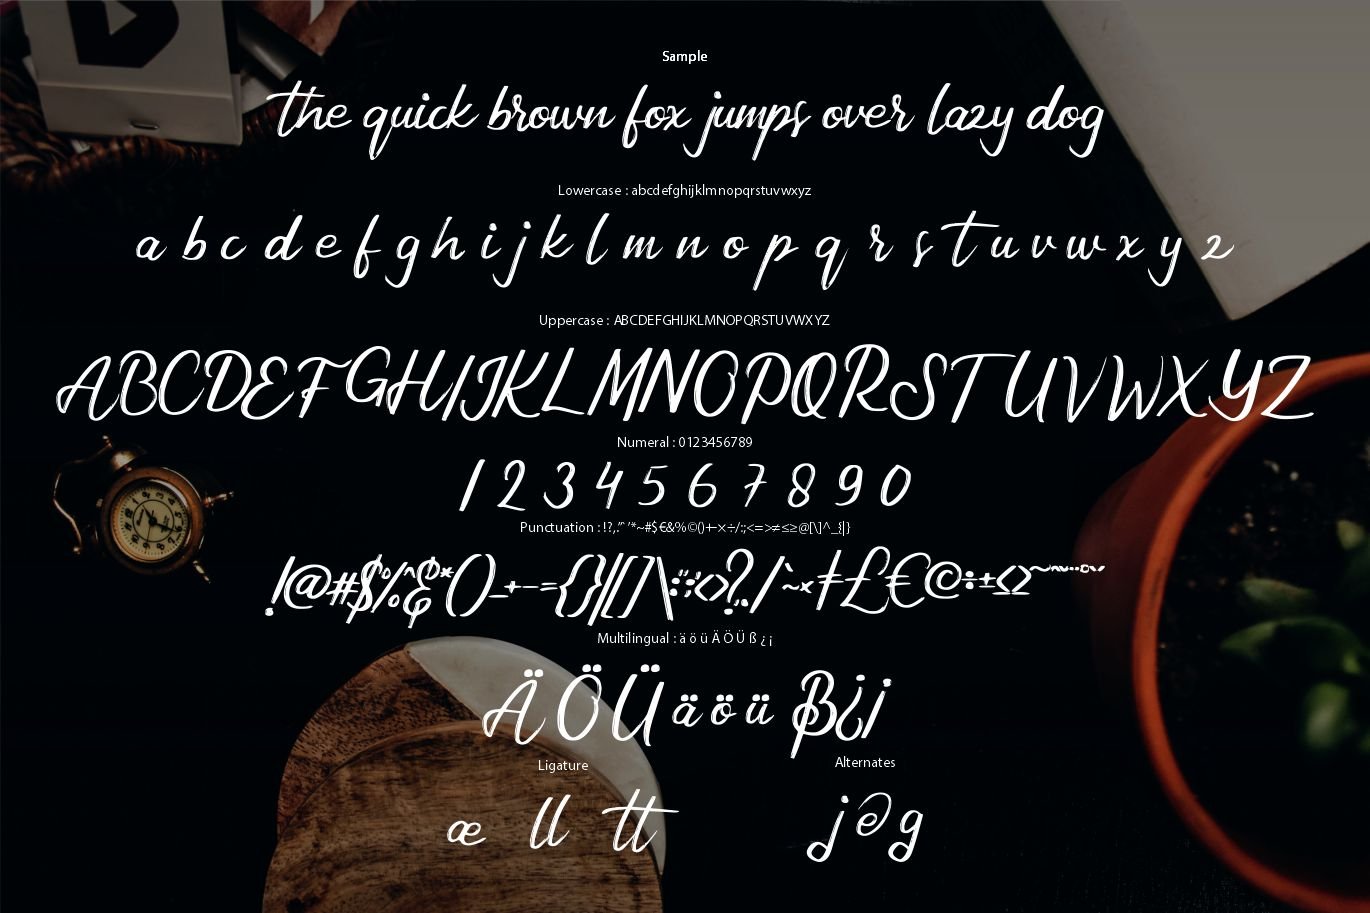 Sample
the quick brown fox jumps over lazy dog
Lowercase : abcdefghijklmnopqrstuvwxyz
a b c d e f g h i j k l m n o p q r s t u v w x y z
Uppercase : ABCDEFGHIJKLMNOPQRSTUVWXYZ
ABCDEFGHIJKLMNOPQRSTUVWXYZ
Numeral : 0123456789
1 2 3 4 5 6 7 8 9 0
Punctuation : !?,.”“ ‘’*~#$€&%©()+-×÷/:;<=>≠≤≥@[\]^_{|}
!@#$%^&*()_+-={}|[]\:";'<>?,./`~×≠£€©÷±≤≥
Multilingual : ä ö ü Ä Ö Ü ß ¿ ¡
Ä Ö Ü ä ö ü ß ¿ ¡
Ligature
Alternates
æ ll tt
j d g